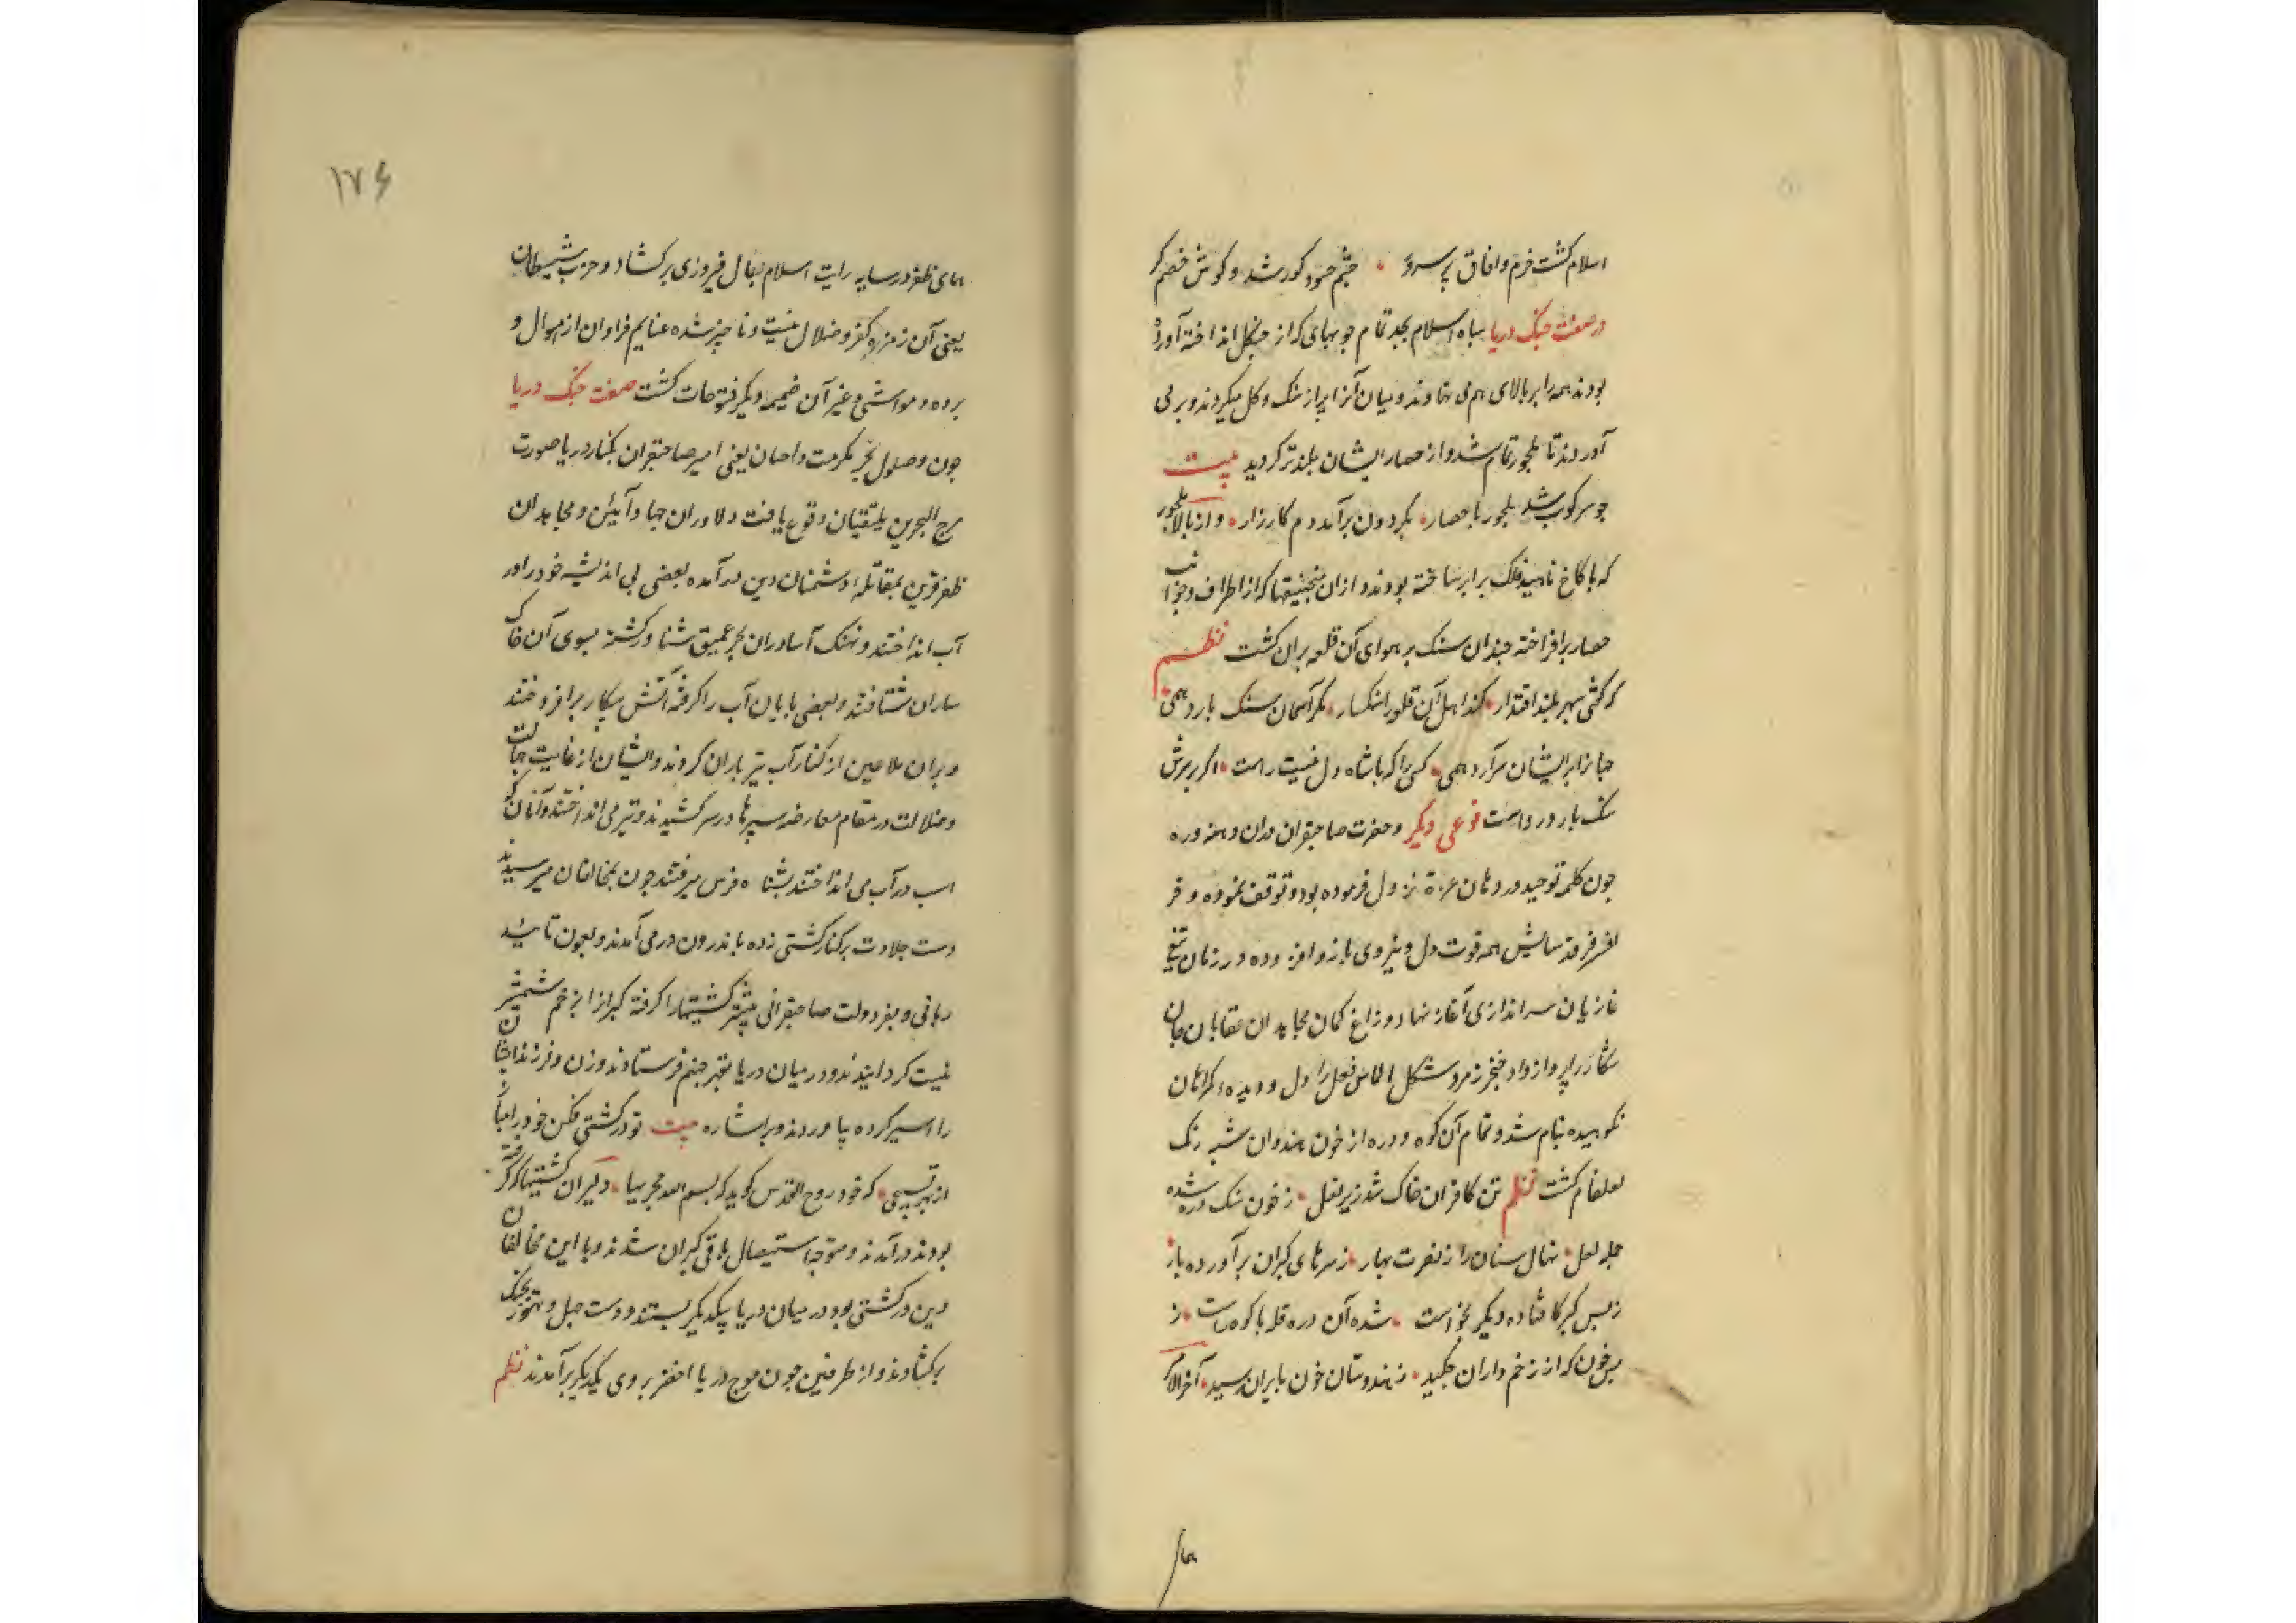 اسلام کشت خرم و افاق پر سرور چشم حسود کور شد و کوش خصم کر
در صفت جنک دریا سپاه اسلام بجد تمام چوبهای که از جنکل انداخته آورده
بودند همه را بر بالای هم می نهادند و میان آنرا پر از سنک و کل میکردند و بر می
آوردند تا ملجور تمام شد و از حصار ایشان بلندتر کردید بیت
چو سرکوب شد ملجور با حصار بکردون برآمد دم کارزار و از بالا ملجور
که با کاخ ناهید فلک برابر ساخته بودند و ازان منجنیقها که از اطراف و جوانب
حصار برافراخته چندان سنک بر هوای آن قلعه پران کشت نظم
که کفتی سپهر بلند اقتدار کند اهل آن قلعه را سنکسار مکر آسمان سنک بارد همی
جهانرا بر ایشان سرآرد همی کسی را که با شاه دل نیست راست اکر بر سرش
سنک بارد رواست نوعی دیکر و حضرت صاحبقران دران دهنه دره
چون کلمه توحید در دهان عزة نزول فرموده بود و توقف نموده و فر
افسر فرقد سایش همه قوت دل و نیروی بازو افزوده و زبان تیغ
غازیان سراندازی آغاز نهاد و زاغ کمان مجاهدان عقابان جان
شکار را پرواز داد خنجر زمرد شکل الماس فعل را دل و دیده کمراهان
نکوهیده نیام شد و تمام آن کوه و دره از خون هندوان شبه رنک
لعلفام کشت نظم تن کافران خاک شد زیر نعل ز خون سنک دره شده
جمله لعل نهال سنان را ز نصرت بهار ز سرهای کبران برآورده بار
ز بس کبر کافتاده دیکر نخواست شده آن دره قله با کوه راست ز
بس خون که از زخم داران چکید ز هندوستان خون بایران رسید آخر الامر
همای
۱۷۶
همای ظفر در سایه رایت اسلام بال فیروزی برکشاد و حزب شیطان
یعنی آن زمره کفر و ضلال نیست و ناچیز شده غنایم فراوان از اموال و
برده و مواشی و غیر آن ضمیمه دیکر فتوحات کشت صفت جنک دریا
چون وصول بحر مکرمت و احسان یعنی امیر صاحبقران بکنار دریا صورت
مرج البحرین یلتقیان وقوع یافت دلاوران جهاد آیین و مجاهدان
ظفر قرین بمقاتله دشمنان دین درآمده بعضی بی اندیشه خود را در
آب انداختند و نهنک آسا دران بحر عمیق شناور کشته بسوی آن خاک
ساران شتافتند و بعضی پایان آب را کرفته آتش پیکار برافروختند
و بران ملاعین از کنار آب تیر باران کردند و ایشان از غایت جهالت
و ضلالت در مقام معارضه سپرها در سر کشیدند و تیر می انداختند و آنان که
اسب در آب می انداختند بشناه فرس میرفتند چون بمخالفان میرسیدند
دست جلادت بر کنار کشتی زده باندرون در می آمدند و بعون تائید
ربانی و بفر دولت صاحبقرانی بیشتر کشتیها را کرفته کبرانرا بزخم شمشیر
نیست کردانیدند و در میان دریا بقعر جهنم فرستادند و زن و فرزند ایشان
را اسیر کرده بیاوردند و بر اشاره بیت تو در کشتی فکن خود را مپای
از بهر تسبیحی که خود روح القدس کوید که بسم الله مجریها دلیران کشتیها که کرفته
بودند درآمدند و متوجه استیصال باقی کبران شدند و با این مخالفان
دین در کشتی بود در میان دریا بیکدیکر بستند و دست جهل و تهور بجنک
برکشادند و از طرفین چون موج دریا اخضر بروی یکدیکر برآمدند نظم